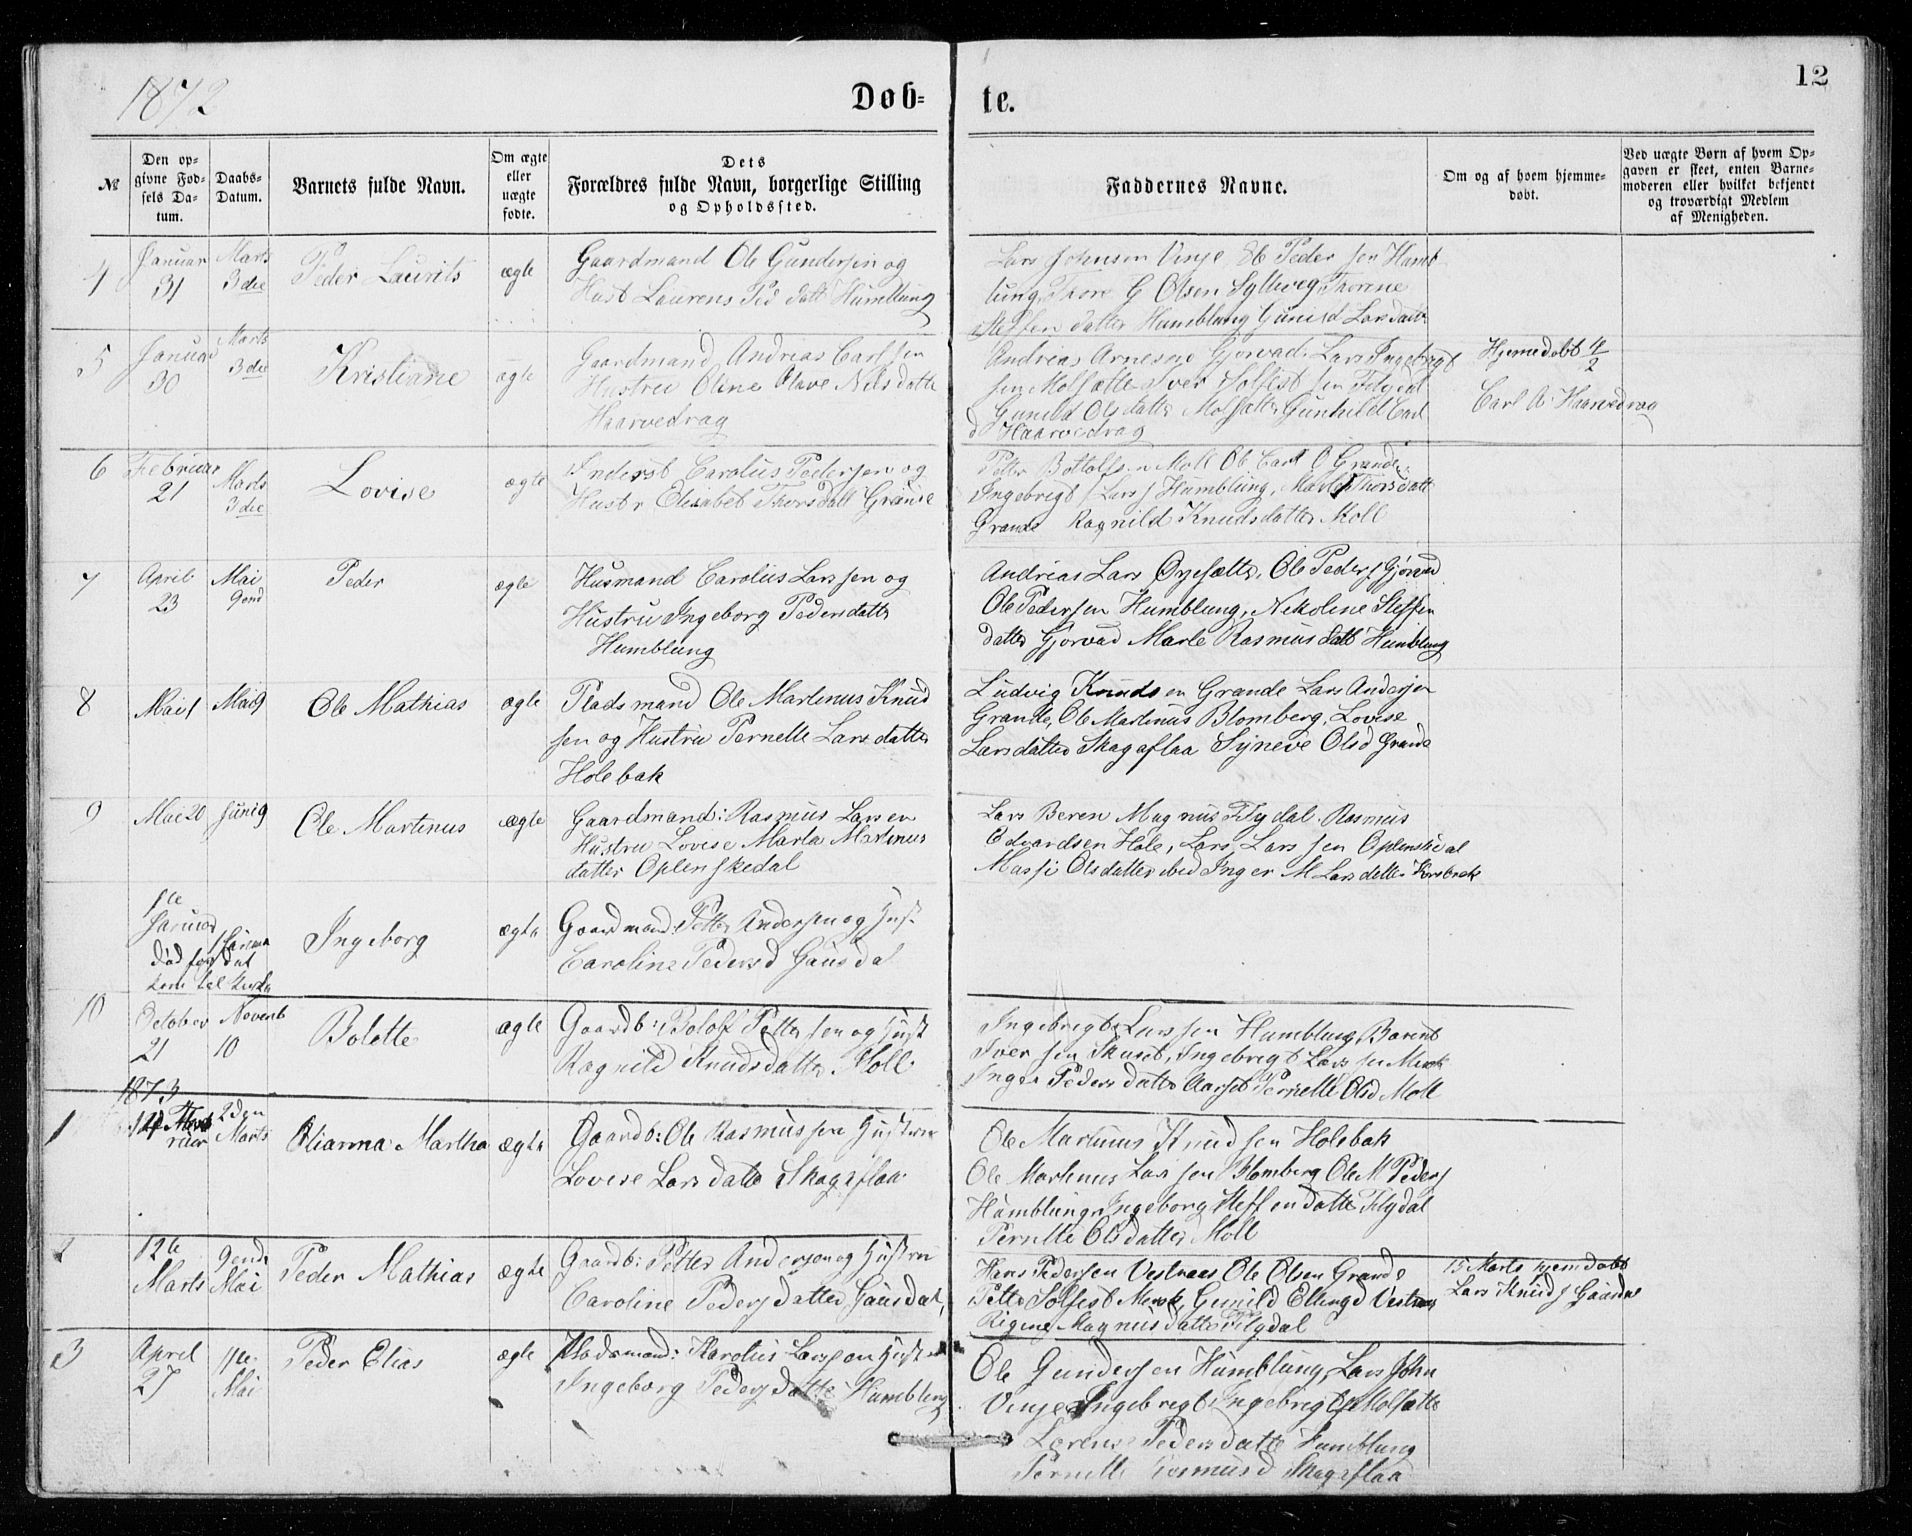 1872
Døb=
te.
12
№
Den op=
givne Fød=
sels Da=
tum.
Daabs=
Datum.
Barnets fulde Navn.
Om ægte
eller
uægte
fødte.
Dets
Forældres fulde Navn, borgerlige Stilling
og Opholdssted.
Faddernes Navne.
Om og af hvem hjemme=
døbt.
Ved uægte Børn af hvem Op=
gaven er skeet, enten Barne=
moderen eller hvilket bekjendt
og troværdigt Medlem
af Menigheden.
4
Januar
31
Marts
3die
Peder Laurits
ægte
Gaardmand Ole Gundersen og
Hust Laurens Ped datt Humblung
Lars Johnsen Vinje Ob Peder sen Humb
lung, Thore G Olsen Sylteveg, Thorene
Steffen datter Humblung Gunild Lars datt
5
Januar
30
Marts
3die
Kristiane
ægte
Gaardmand Andreas Carlsen
Hustru Oline Olave Nilsdatte
Haarvedrag
Andreas Arnesen Gjørvad, Lars Ingebrigt
sen Molsætte Iver Solfest sen Flydal
Gunild Olsdatte Molsætte Gunhild Carl
d Haarvedrag
Hjemedøbt 4/2
Carl A Haarvedrag
6
Februar
21
Marts
3die
Lovise
ægte
Inderst Carolus Pedersen og
Hustr Elisabet Thorsdatt Grande
Petter Bottolfsen Moll Ob Carl O Grande
Ingebrigt Lars J Humblung, Marte Thorsdatt
Grande Ragnild Knudsdatter Moll
7
April
23
Mai
9end
Peder
ægte
Husmand Carolus Larssen og
Hustru Ingeborg Pedersdatte
Humblung
Andrias Lars Øyesætte, Ole Peders Gjørvad
Ole Pedersen Humblung, Nikoline Steffen
datter Gjørvad Marte Rasmusdatt Humblung
8
Mai 1
Mai 9
Ole Mathias
ægte
Pladsmand Ole Martinus Knud
sen og Hustru Pernelle Larsdatter
Holebak
Ludvig Knudsen Grande Lars Andersen
Grande, Ole Martinus Blomberg, Lovise
Larsdatter Skagaflaa Syneve Olsd Grande
9
Mai 20
Juni 9
Ole Martinus
ægte
Gaardmand: Rasmus Larsen
Hustru Lovise Marta Martinus
datter Oplenskedal
Lars Beren Magnus Flydal, Rasmus
Edvardsen Hole, Lars Larssen Oplenskeal
Massi Olsdatter ibid Inger M Larsdatter Korsbrek
1ste
Januar
død før
Ingeborg
ægte
Gaardmand: Petter Andersen og Hust
Caroline Pedersd Gausdal
10
October
21
Novenb
10
Bolette
ægte
Gaardb: Bolof Pettersen og Hust
Ragnild Knudsdatter Moll
Ingebrigt Larssen Humblung, Barent
Iversen Skuset, Ingebrigt Larssen Merok
Inger Pedersdatter Aarset Pernelle Olsd Moll
1873
1
Februar
2den
Marts
Olianna Martha
ægte
Gaardb: Ole Rasmussen Hustru
Lovise Larsdatte Skagaflaa
Ole Martinus Knudsen Holebak
Ole Martinus Larssen Blomberg Ole M Peders
Humblung, Ingeborg Steffendatte Flydal
Pernille Olsdatter Moll
2
12te
Marts
9ende
Mai
Peder Mathias
ægte
Gaardb: Petter Andersen og Hustru
Caroline Pedersdatter Gausdal,
Hans Pedersen Vestraas Ole Olsen Grande
Petter Solfest Merok, Gunild Ellingd Vestraas
Regine Magnusdatter Flydal
15 Marts hjemdøbt
Lars Knuds Gausdal
3
April
27
11te
Mai
Peder Elias
ægte
Pladsmand: Karolus Larssen Hustru
Ingeborg Pedersdatte Humblung
Ole Gundersen Humblung, Lars John
Vinje Ingebrigt Ingebrigts Molsætte
Lorense Pedersdatte Humblung
Pernelle Rasmusd Skagaflaa